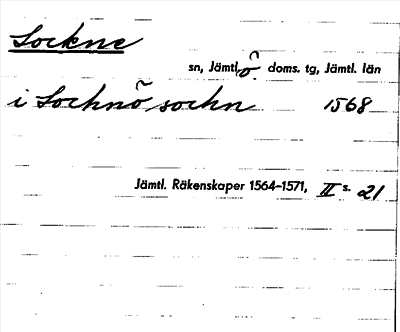 Sockne
sn, Jämtl. ö. doms. tg, Jämtl. län
i Sochnö sochn 1568
Jämtl. Räkenskaper 1564-1571, II s. 21